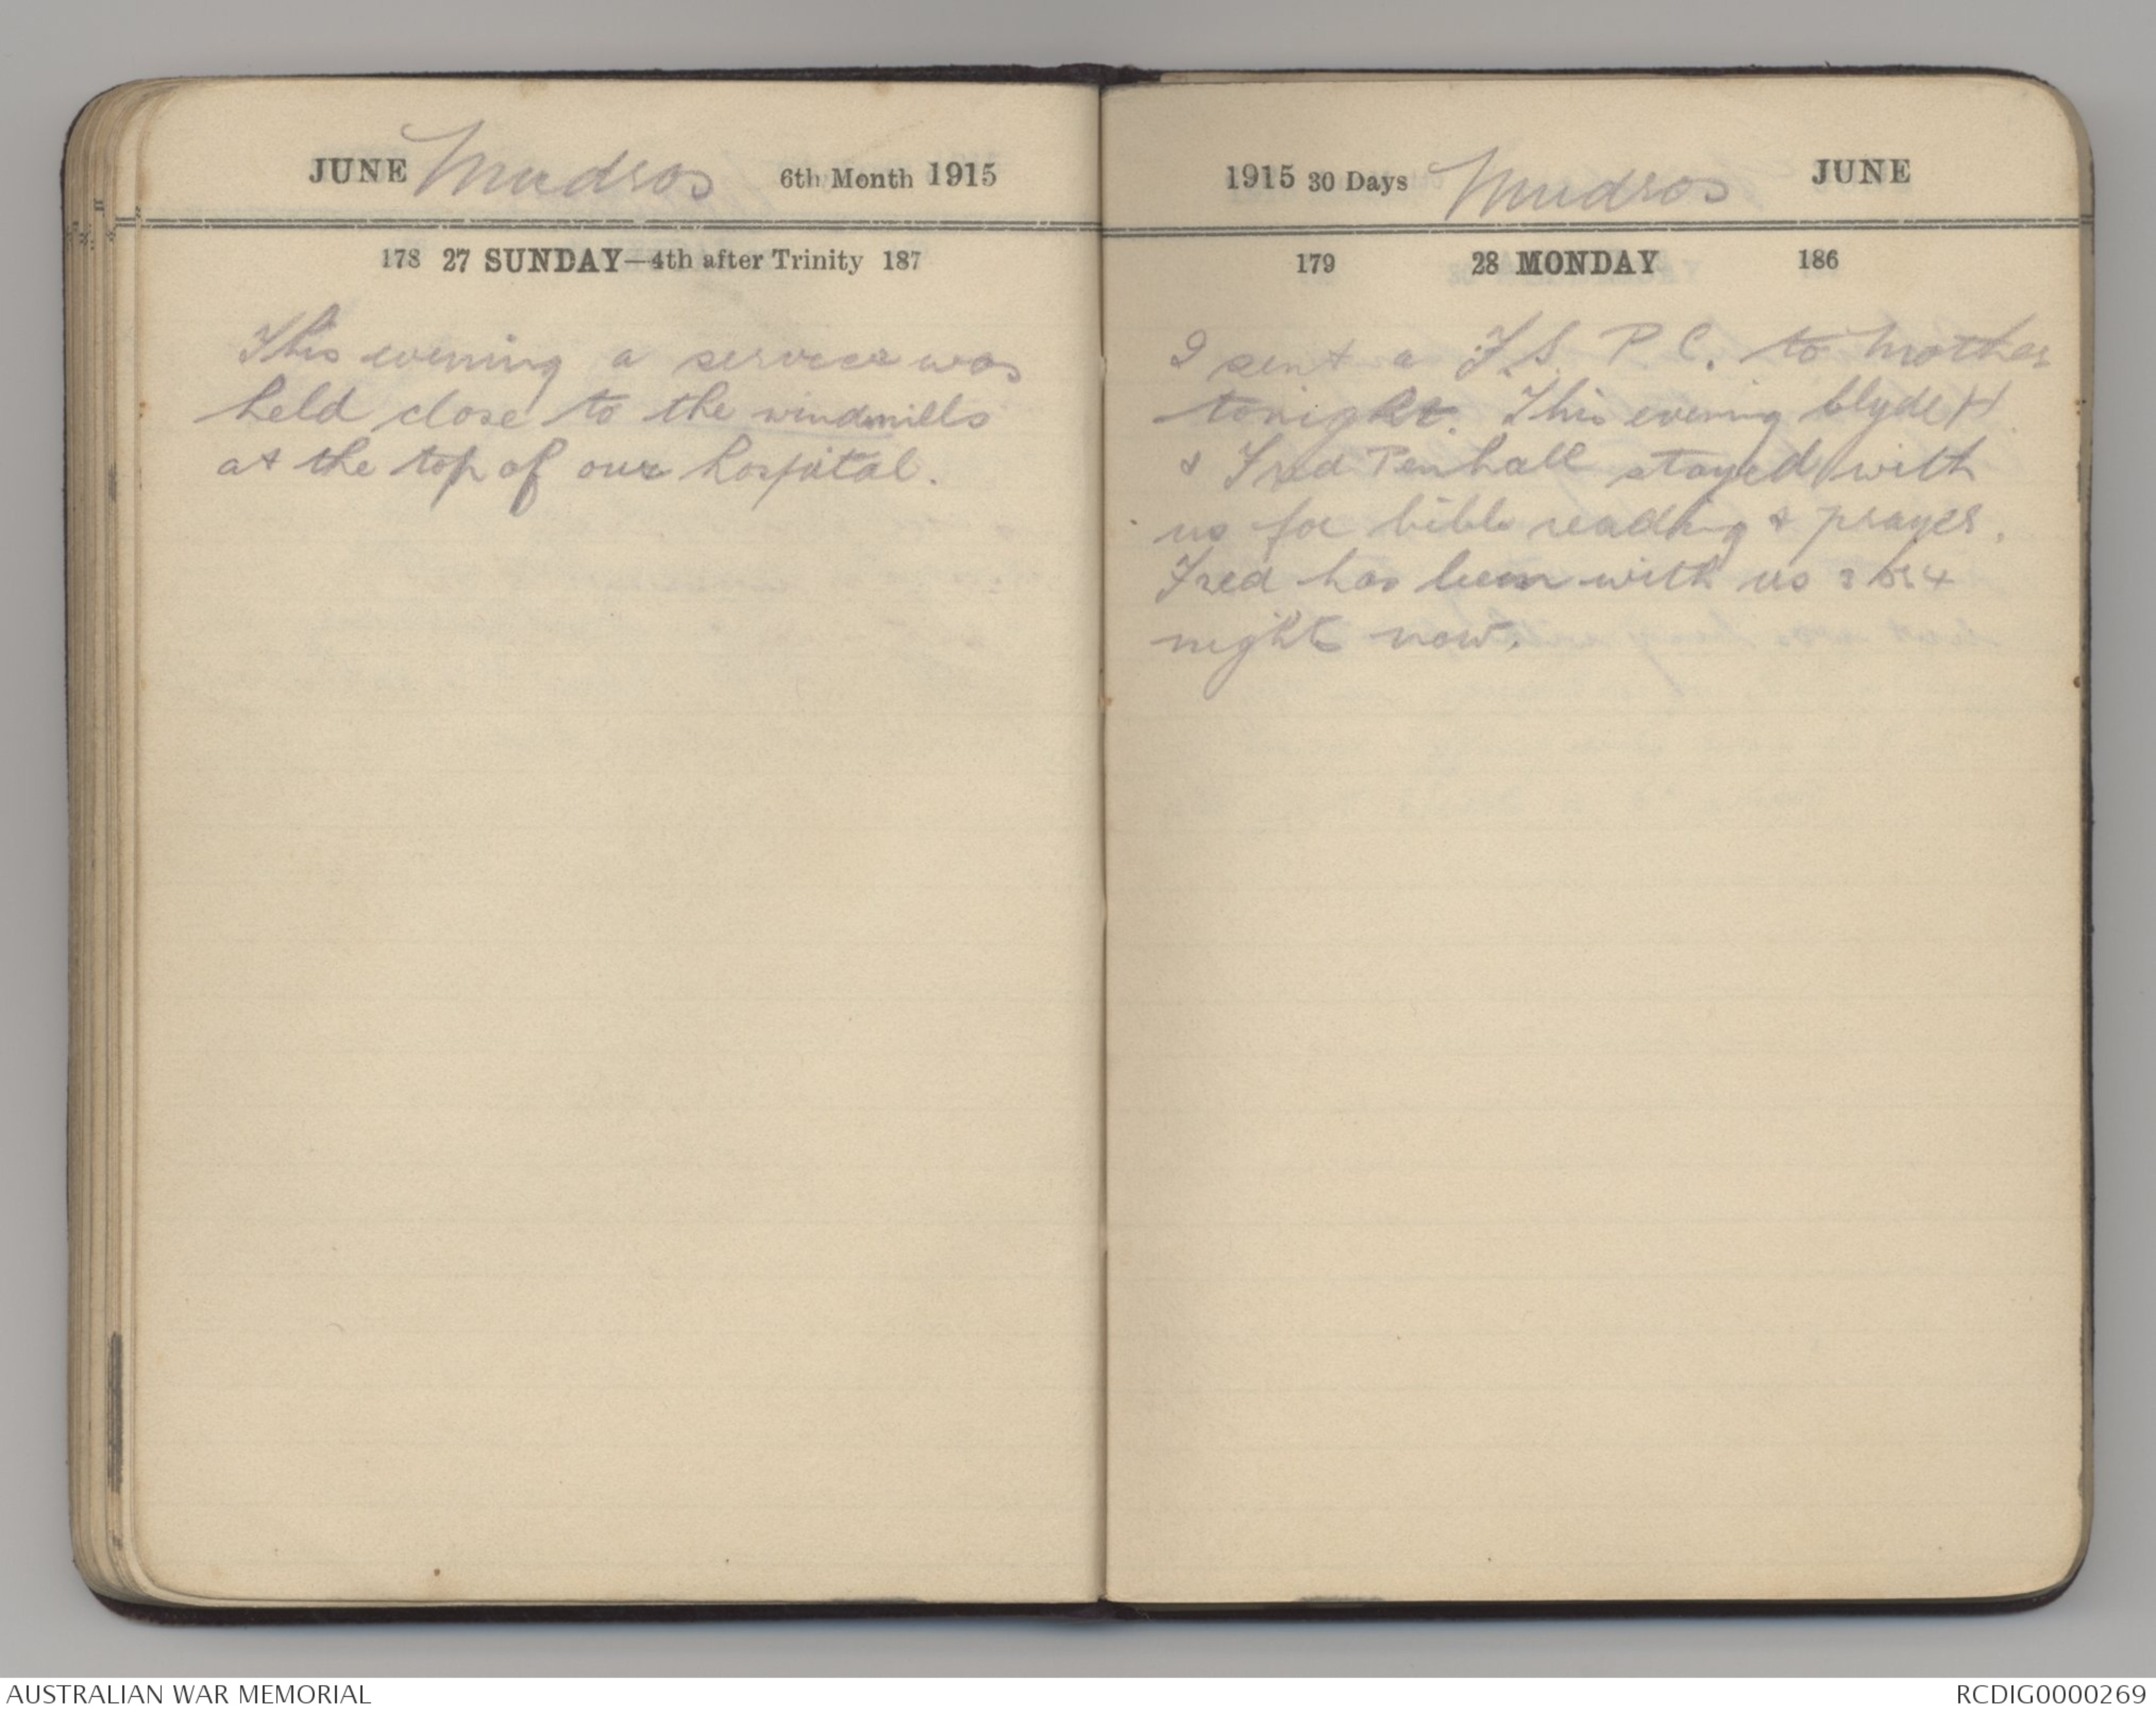 JUNE Mudros 6th Month 1915
178 27 SUNDAY—4th after Trinity 187
This evening a service was
held close to the windmills
at the top of our hospital.
1915 30 Days Mudros JUNE
179 28 MONDAY 186
I sent a F.S. P.C. to Mother
tonight. This evening Clyde H.
& Fred Penhall stayed with
us for bible reading & prayer.
Fred has been with us 3 or 4
night now.
AUSTRALIAN WAR MEMORIAL
RCDIG0000269